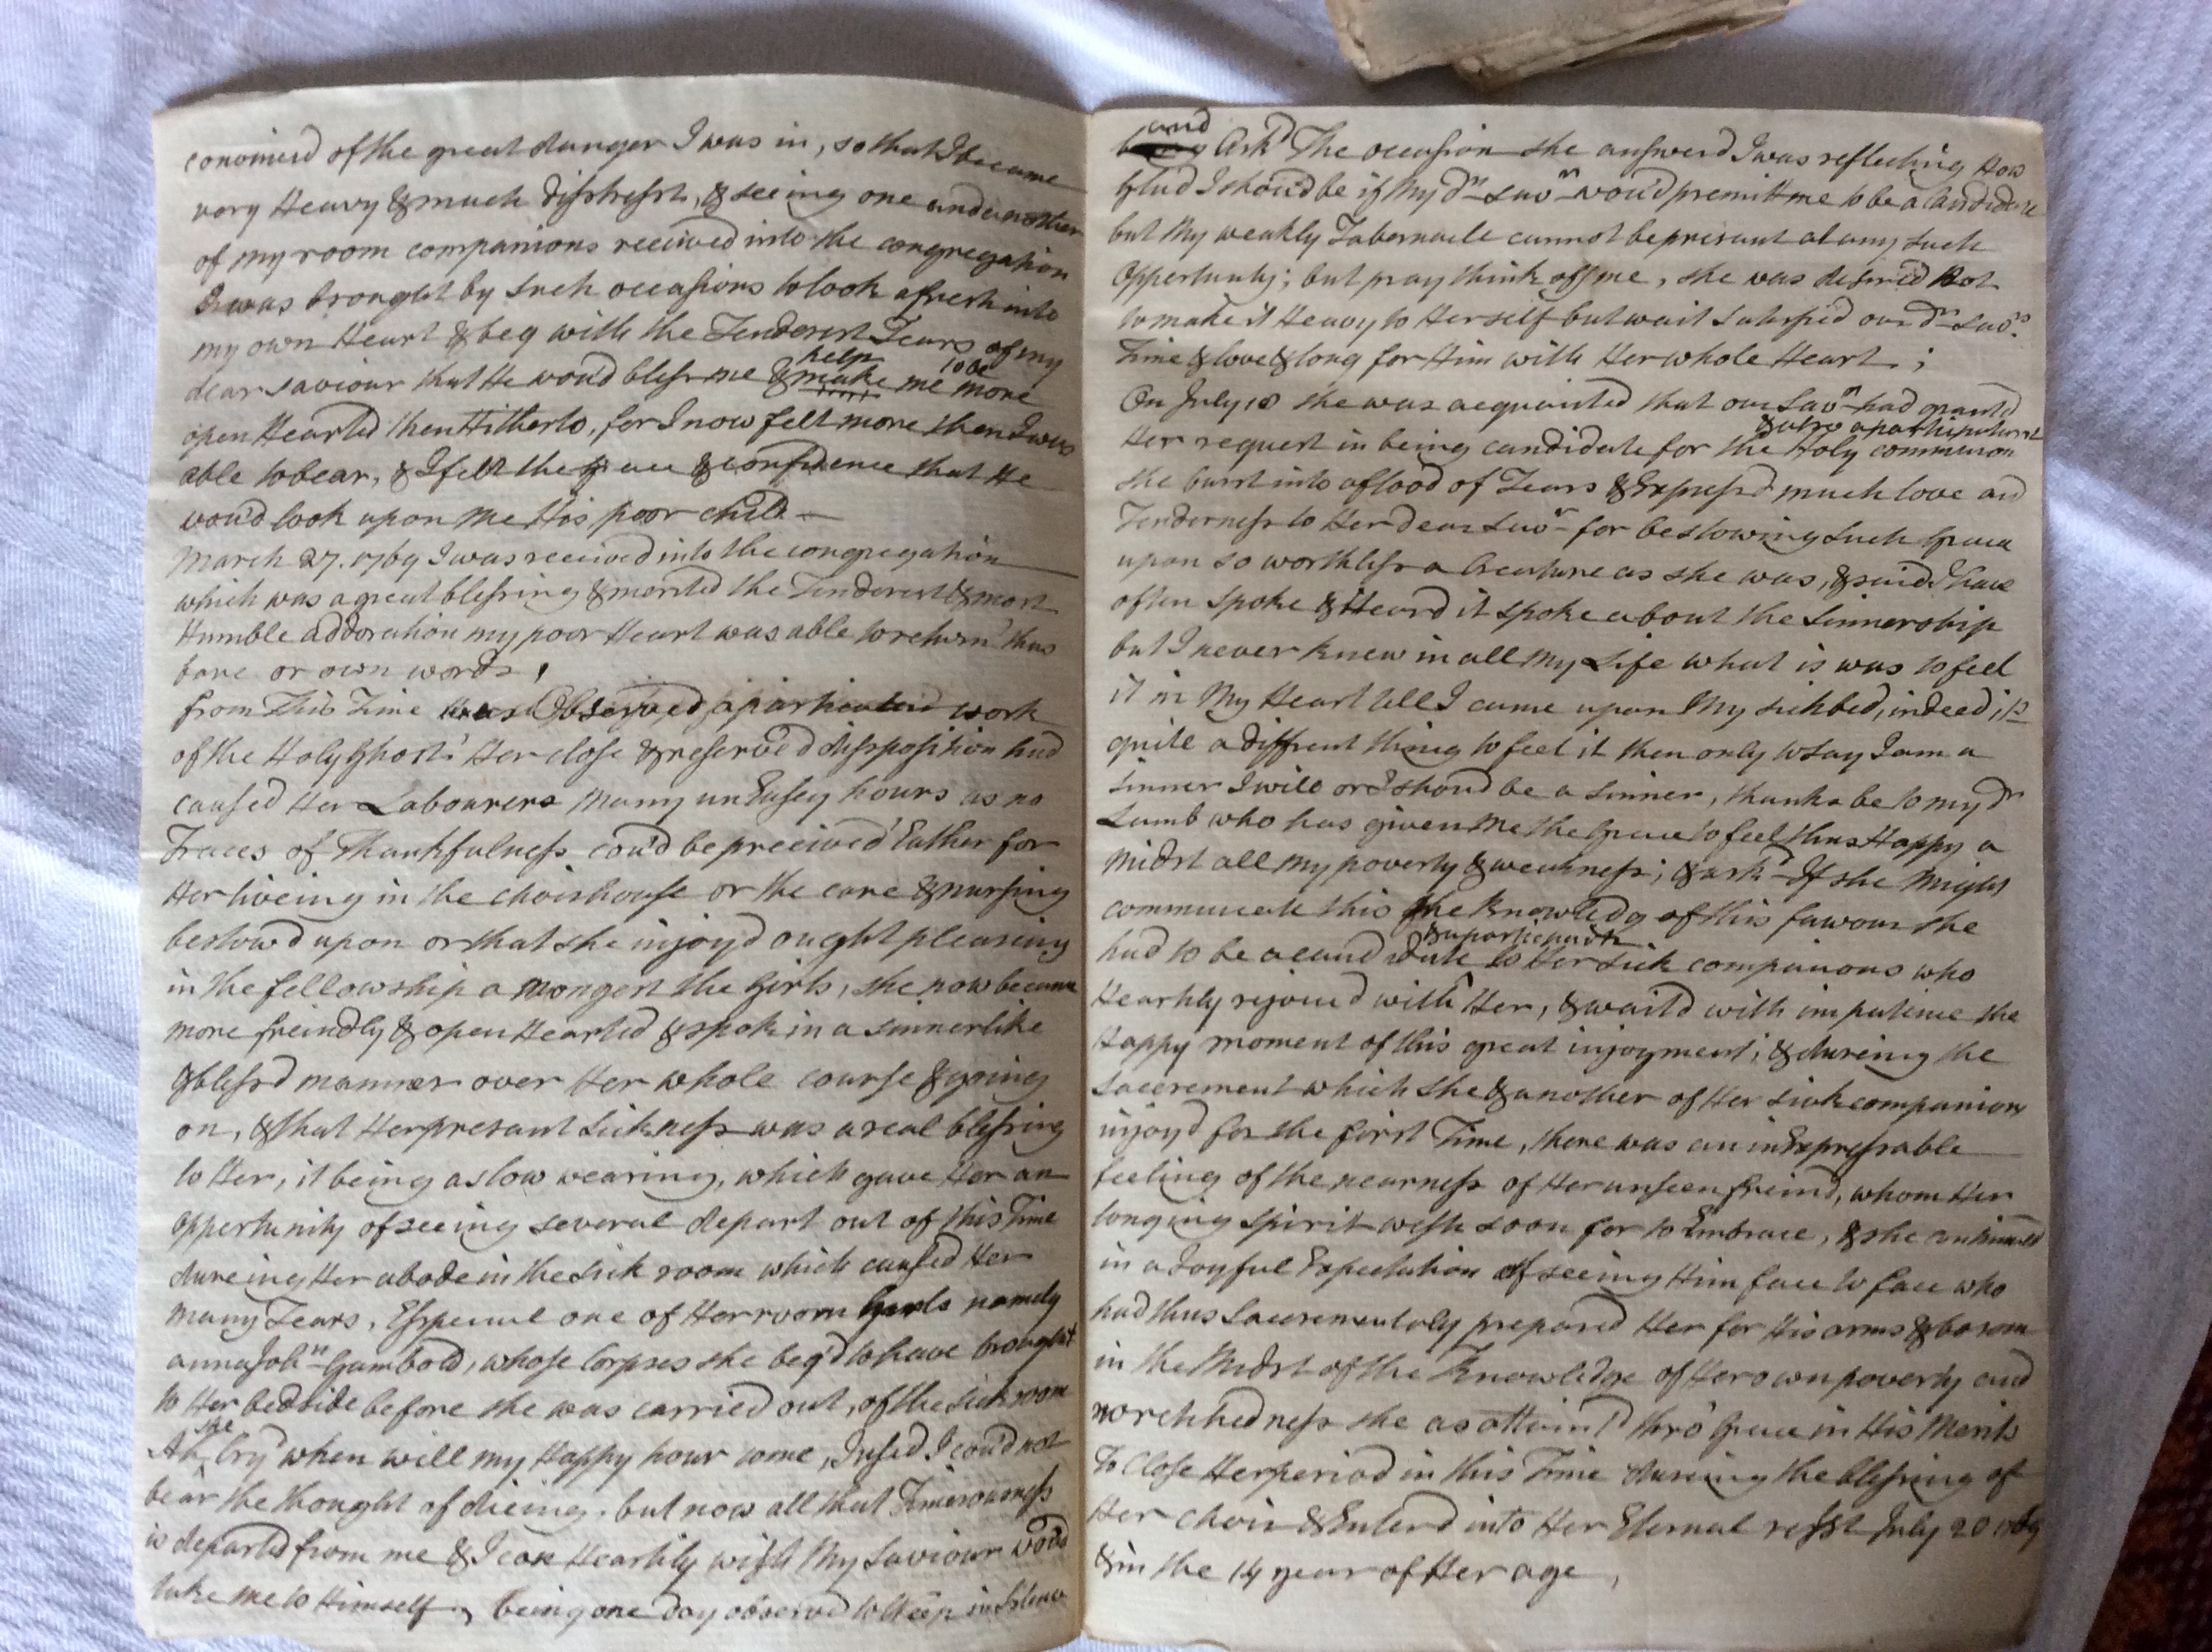 convinced of the great danger I was in, so that I became
very Heavy & much disstresst, & seeing one and another
of my room companions received into the congregation
I was brought by such occasions to look afresh into
my own Heart & beg with the Tenderest Tears of my
dear saviour that He wou'd bless me & make help me to be more
open Hearted then Hitherto, for I now felt more then I was
able to bear, & I felt the grace & confidence that He
wou'd look upon me His poor child —
March 27. 1769 I was received into the congregation
which was a great blessing & merited the Tenderest & most
Humble addoration my poor Heart was able to return' thus
fare or own words,
from This Time was Observed a particular work
of the Holy Ghost' Her close & reserv'd dissposition had
caused Her Labourers many un Easey hours as no
Traces of Thankfulness cou'd be preceived Eather for
Her liveing in the choirhouse or the care & nursing
bestow'd upon or that she injoy'd ought pleasing
in the fellowship a mongest the Girls, she now became
more freindly & open Hearted & spok in a sinnerlike
& bless'd manner over Her whole course & going
on, & that Her presant sickness was a real blessing
to Her, it being a slow wearing, which gave Her an
oppertunity of seeing several depart out of this Time
dureing Her abode in the sick room which caused Her
many Tears, Espenial one of Her room Girls namely
anna Joh:n Gambold, whose Corpses she beg'd to have brought
to Her bedside before she was carried out, of the sick room
Ah, she Cry'd when will my Happy hour come, I used I cou'd not
bear the thought of dieing, but now all that Timerousness
is departed from me & I can Heartily wish My Saviour wou'd
take me to Himself, being one day observed to weep in silence
being and Ask'd The occasion she answerd I was reflecting How
Glad I shou'd be if My dr Savr wou'd premitt me to be a Candidate
but My weakly Tabernacle cannot be presant at any such
Oppertunity; but pray think off me, she was desired Not
to make it Heavy to Herself but wait satisfied our dr Savrs
Time & love & long for Him with Her whole Heart ;
On July 18 she was acquainted that our Savr had granted
Her request in being candidate for & also a partisipitant the Holy communion
she burst into a flood of Tears & Express'd much love and
Tenderness to Her dear Savr for bestowing such Grace
upon so worthless a Creature as she was, & said I have
often spoke & Heard it spoke about the Sinnership
but I never knew in all My Life what is was to feel
it in My Heart till I came upon My sickbed, indeed it's
quite a diffrent thing to feel it then only to say I am a
sinner I will or shoud be a sinner, thanks be to my dr
Lamb who has given Me the Grace to feel thus Happy a
midst all my poverty & weakness; & ask'd If she Might
communicate this the Knowledg of this favour she
had to be a candidate & apartisipant to Her sick companions who
Heartily rejoiced with Her, & wait'd with impatience the
Happy moment of this great injoyment; & dureing the
sacerement which she & another of Her sick companions
injoy'd for the first Time, there was an inExpressable
feeling of the nearness of Her unseen freind, whom Her
longing spirit wish soon for to Embrace, & she continued
in a Joyful Expectation of seeing Him face to face who
had thus Sacerementaly prepared Her for His arms & bosom
in the Midst of the Knowledge of Her own poverty and
wretchedness she as attain'd thro' Grace in His Merits
To Close Her period in this Time dureing the blessing of
Her choir & Enterd into Her Eternal resst July 20 1769
& in the 14 year of Her age,